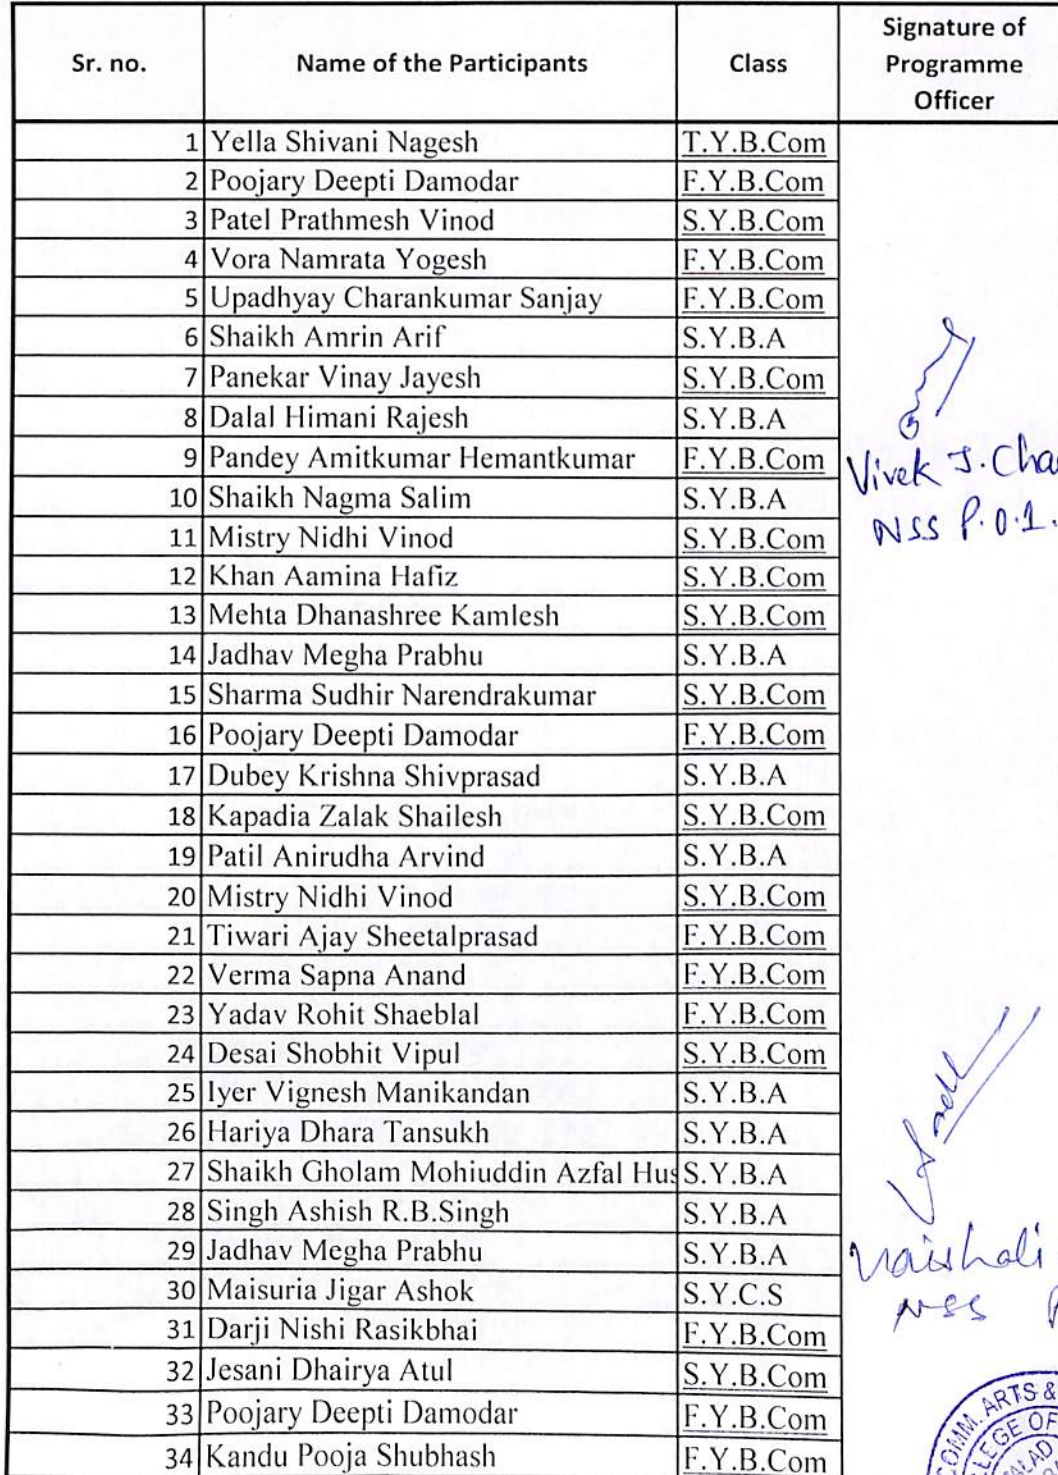 Sr. no. Name of the Participants Class Signature of Programme Officer
1 Yella Shivani Nagesh T.Y.B.Com
2 Poojary Deepti Damodar F.Y.B.Com
3 Patel Prathmesh Vinod S.Y.B.Com
4 Vora Namrata Yogesh F.Y.B.Com
5 Upadhyay Charankumar Sanjay F.Y.B.Com
6 Shaikh Amrin Arif S.Y.B.A
7 Panekar Vinay Jayesh S.Y.B.Com
8 Dalal Himani Rajesh S.Y.B.A
9 Pandey Amitkumar Hemantkumar F.Y.B.Com
Vivek J. Cha
10 Shaikh Nagma Salim S.Y.B.A
NSS P.O.1.
11 Mistry Nidhi Vinod S.Y.B.Com
12 Khan Aamina Hafiz S.Y.B.Com
13 Mehta Dhanashree Kamlesh S.Y.B.Com
14 Jadhav Megha Prabhu S.Y.B.A
15 Sharma Sudhir Narendrakumar S.Y.B.Com
16 Poojary Deepti Damodar F.Y.B.Com
17 Dubey Krishna Shivprasad S.Y.B.A
18 Kapadia Zalak Shailesh S.Y.B.Com
19 Patil Anirudha Arvind S.Y.B.A
20 Mistry Nidhi Vinod S.Y.B.Com
21 Tiwari Ajay Sheetalprasad F.Y.B.Com
22 Verma Sapna Anand F.Y.B.Com
23 Yadav Rohit Shaeblal F.Y.B.Com
24 Desai Shobhit Vipul S.Y.B.Com
25 Iyer Vignesh Manikandan S.Y.B.A
26 Hariya Dhara Tansukh S.Y.B.A
27 Shaikh Gholam Mohiuddin Azfal Hus S.Y.B.A
28 Singh Ashish R.B.Singh S.Y.B.A
29 Jadhav Megha Prabhu S.Y.B.A
Vaishali
30 Maisuria Jigar Ashok S.Y.C.S
NSS P
31 Darji Nishi Rasikbhai F.Y.B.Com
32 Jesani Dhairya Atul S.Y.B.Com
33 Poojary Deepti Damodar F.Y.B.Com
34 Kandu Pooja Shubhash F.Y.B.Com
COMM. ARTS &
LEGE OF
ALAD